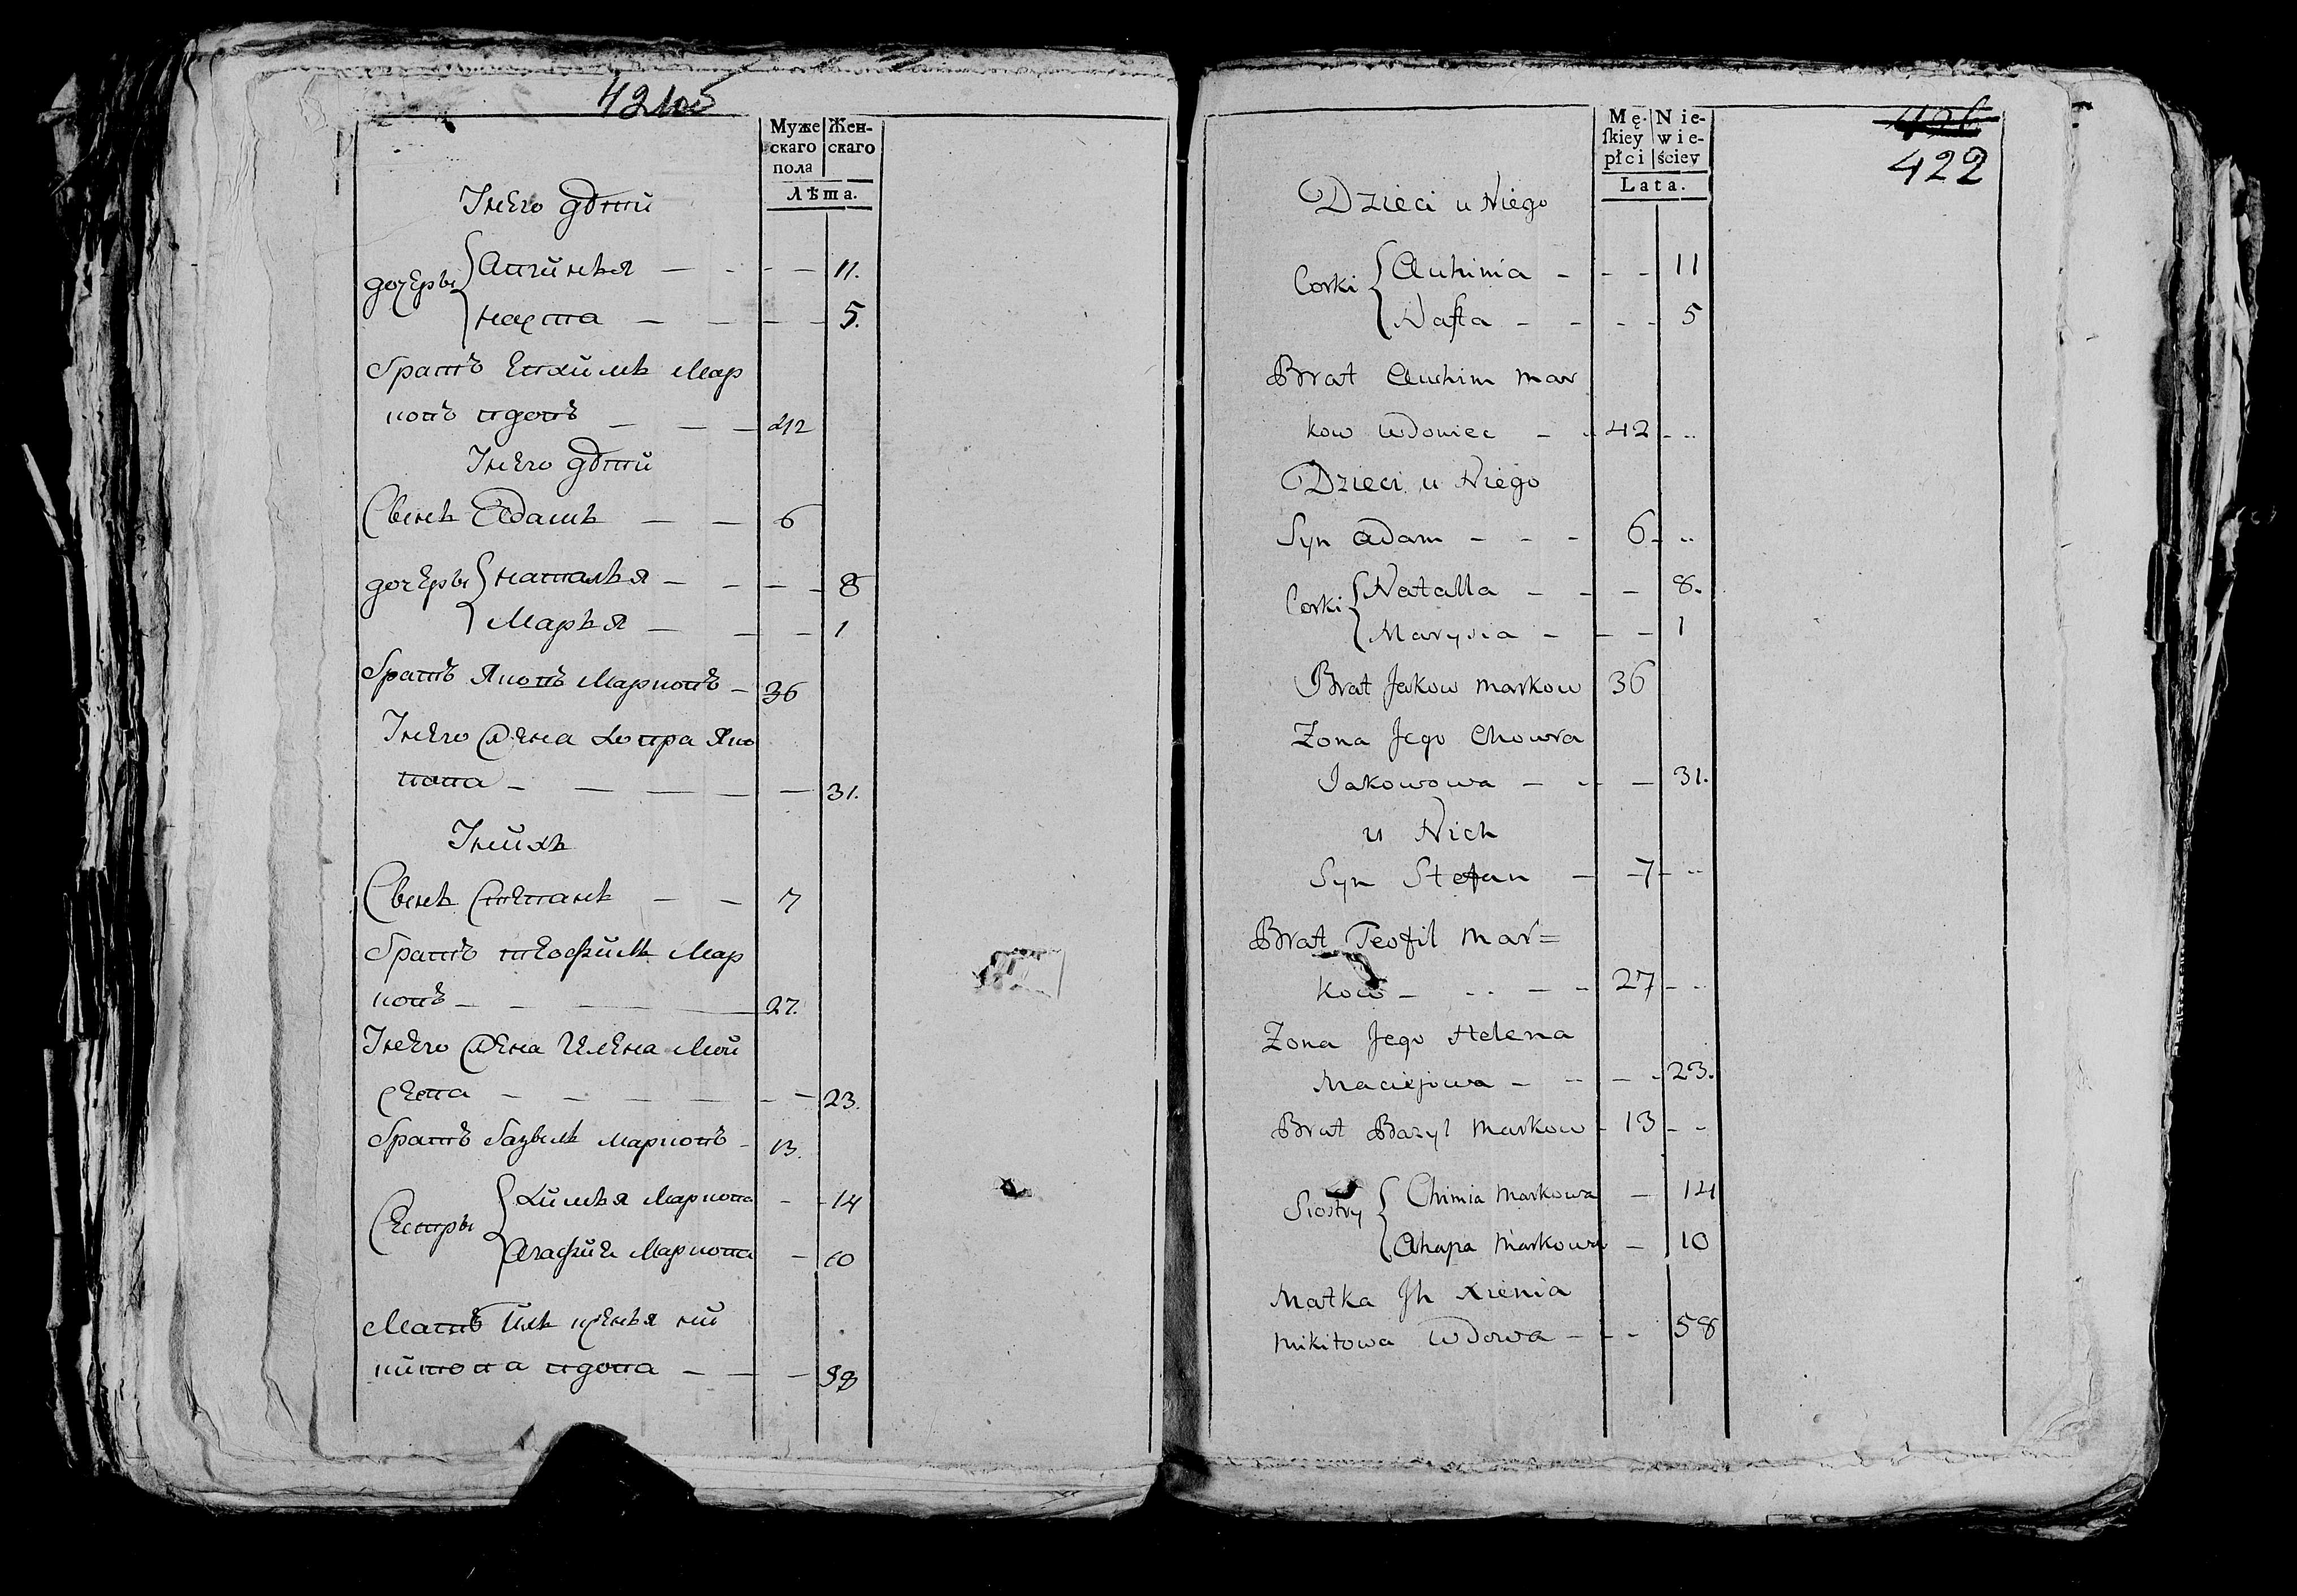 Муже
скаго
пола
Жен-
скаго
Лѣта.
Унего дѣти
дочеры
Авгинья — — 11.
Наста — — — 5.
братъ Евхимъ Мар
ковъ вдовъ — — — 42
Унего дѣти
Сынъ Адамъ — — 6
дочеры
Наталья — — — 8
Марья — — — 1
братъ Яковъ Марковъ — 36
Унего жена Ховра Яко
вова — — — — — 31.
Унихъ
Сынъ Степанъ — — 7
братъ теофилъ Мар
ковъ — — — 27.
Унего жена Елена Мой
сеева — — — — — 23.
братъ базыль марковъ — 13.
Сестры
Химья Маркова — 14
Агафия Маркова — 10
Матъ ихъ ксенья ни
китова вдова — — — 58
Mę-
ſkiey
płci
Nie-
wie-
ściey
Lata.
422
Dzieci u Niego
Corki
Auhinia - - - 11
Nasta - - - - 5
Brat Auchim Mar
kow wdowiec - - 42 - ..
Dzieci u Niego
Syn Adam - - - 6 - ..
Corki
Natalla - - - 8.
Marysia - - - 1
Brat Jakow Markow 36
Zona Jego Chowra
Jakowowa - - - 31.
u Nich
Syn Stefan - 7 - ..
Brat Teofil Mar=
kow - .. - - 27 - ..
Zona Jego Helena
Maciejowa - .. - - 23.
Brat Bazyl Markow - 13 - -
Siostry
Chimia Markowa - 14
Ahapa Markowa - 10
Matka Jh Xienia
Mikitowa wdowa - - - 58